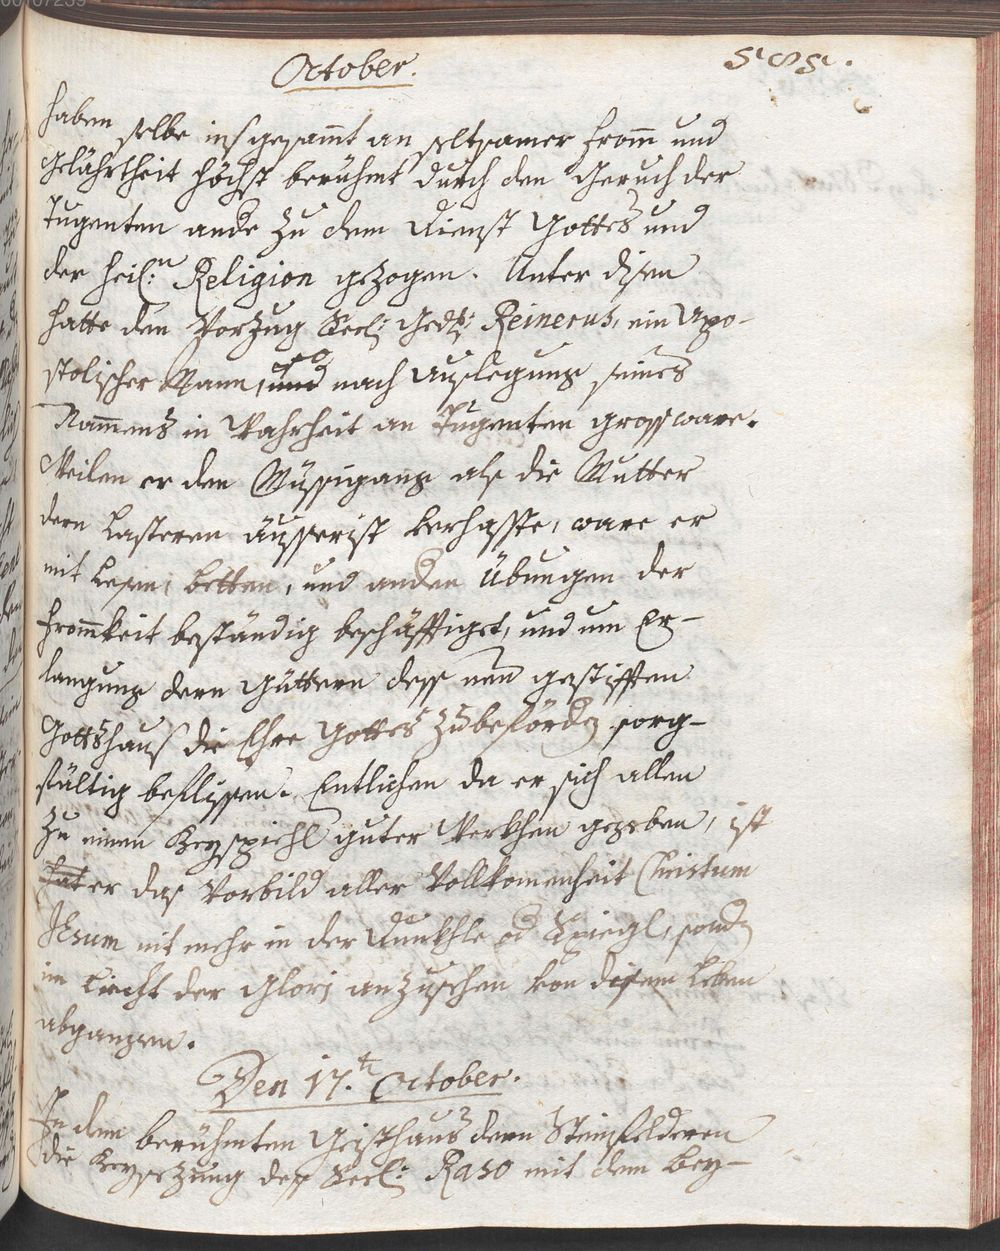 00107239
October. 585.
haben selbe insgesam̄t an seltsamer From̄ und
Gelährtheit höchst berühmt durch den Geruch der
Tugenten ande zu dem Dienst Gottes und
der heil:n Religion gezogen. Unter disen
hatte den Vorzug Seel: Gedst: Reinerus, ein Apo-
stolischer Mann, und nach Auslegung seines
Nam̄ens in Wahrheit an Tugenten gross ware.
Weilen er den Müssigang als die Mutter
deren Lasteren äusserist verhasste, ware er
mit Lesen, betten, und anden Übungen der
From̄keit beständig beschäfftiget, und um Er-
langung deren Gütteren dess neu gestifften
Gottshaus die Ehre Gottes zubefördern sorg-
fältig beflissen. Entlichen da er sich allen
zu einen Beyspiehl guter Werkhen gegeben, ist
hat er das Vorbild aller Vollkomenheit Christum
Jesum nit mehr in der Dunkhle od Spiegl, sondn
im Liecht der Glori anzusehen von disem Leben
abgangen.
Den 17.t October.
In dem berühmten Gottshaus deren Steinfelderen
die Beysetzung des Seel: Raso mit dem Bey-